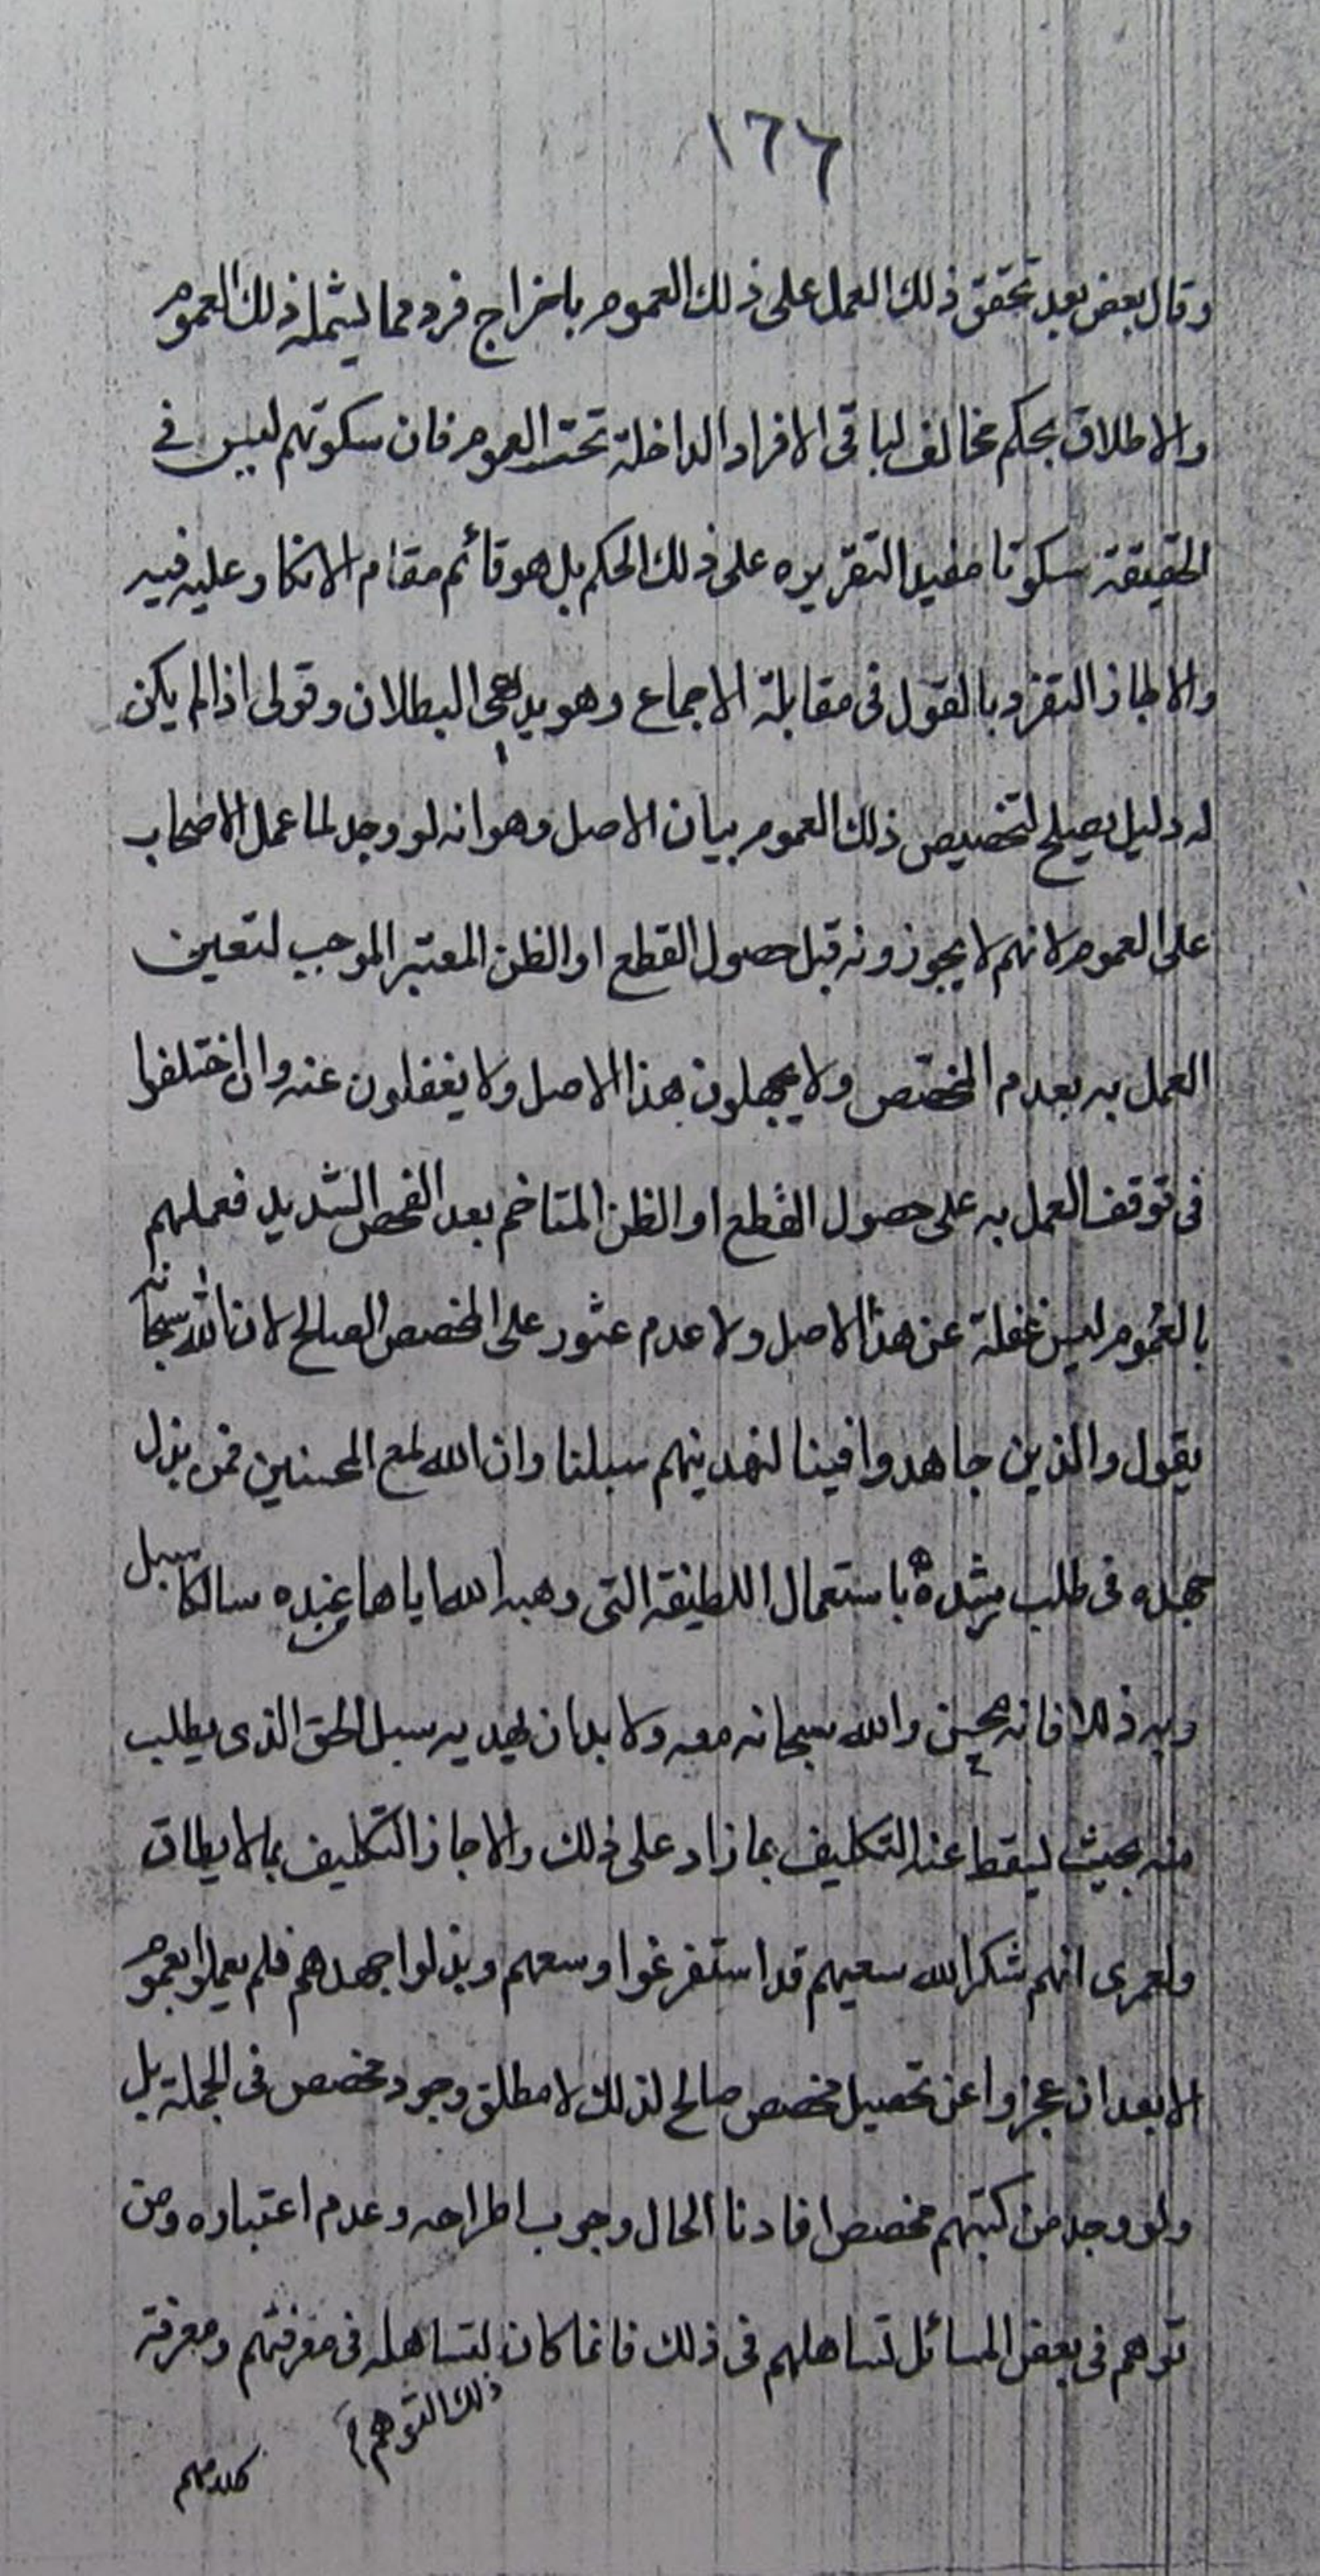 ١٦٦
وقال بعض بعد تحقق ذلك العمل على ذلك العموم باخراج فرد مما يشمله ذلك العموم
والاطلاق بحكم مخالف لباقى الافراد الداخلة تحت العموم فان سكوتهم ليس فى
الحقيقة سكوتا مفيدا لتقريره على ذلك الحكم بل هو قائم مقام الانكار عليه فيه
والا لجاز التفرد بالقول فى مقابلة الاجماع وهو بديهى البطلان وقولى اذا لم يكن
له دليل يصلح لتخصيص ذلك العموم بيان الاصل وهو انه لو وجد لما عمل الاصحاب
على العموم لانهم لا يجوزونه قبل حصول القطع او الظن المعتبر الموجب لتعين
العمل به بعدم المخصص ولا يجهلون هذا الاصل ولا يغفلون عنه وان اختلفوا
فى توقف العمل به على حصول القطع او الظن المتاخم بعد الفحص الشديد فعملهم
بالعموم ليس غفلة عن هذا الاصل ولا عدم عثور على المخصص الصالح لان الله سبحانه
يقول والذين جاهدوا فينا لنهدينهم سبلنا وان الله لمع المحسنين فمن بذل
جهده فى طلب رشده باستعمال اللطيفة التى وهبه الله اياها سالكا سبل
ربه ذللا فانه محسن والله سبحانه معه ولا بد ان يهديه سبل الحق الذى يطلب
منه بحيث يسقط عنه التكليف بما زاد على ذلك والا جاز التكليف بما لا يطاق
ولعمرى انهم شكر الله سعيهم قد استفرغوا وسعهم وبذلوا جهدهم فلم يعملوا بعموم
الا بعد ان عجزوا عن تحصيل مخصص صالح لذلك لا مطلق وجود مخصص فى الجملة بل
ولو وجد من كتبهم مخصص افادنا الحال وجوب اطراحه وعدم اعتباره ومن
توهم فى بعض المسائل تساهلهم فى ذلك فانما كان لتساهله فى معرفتهم ومعرفة
ذلك التوهم
كلامهم